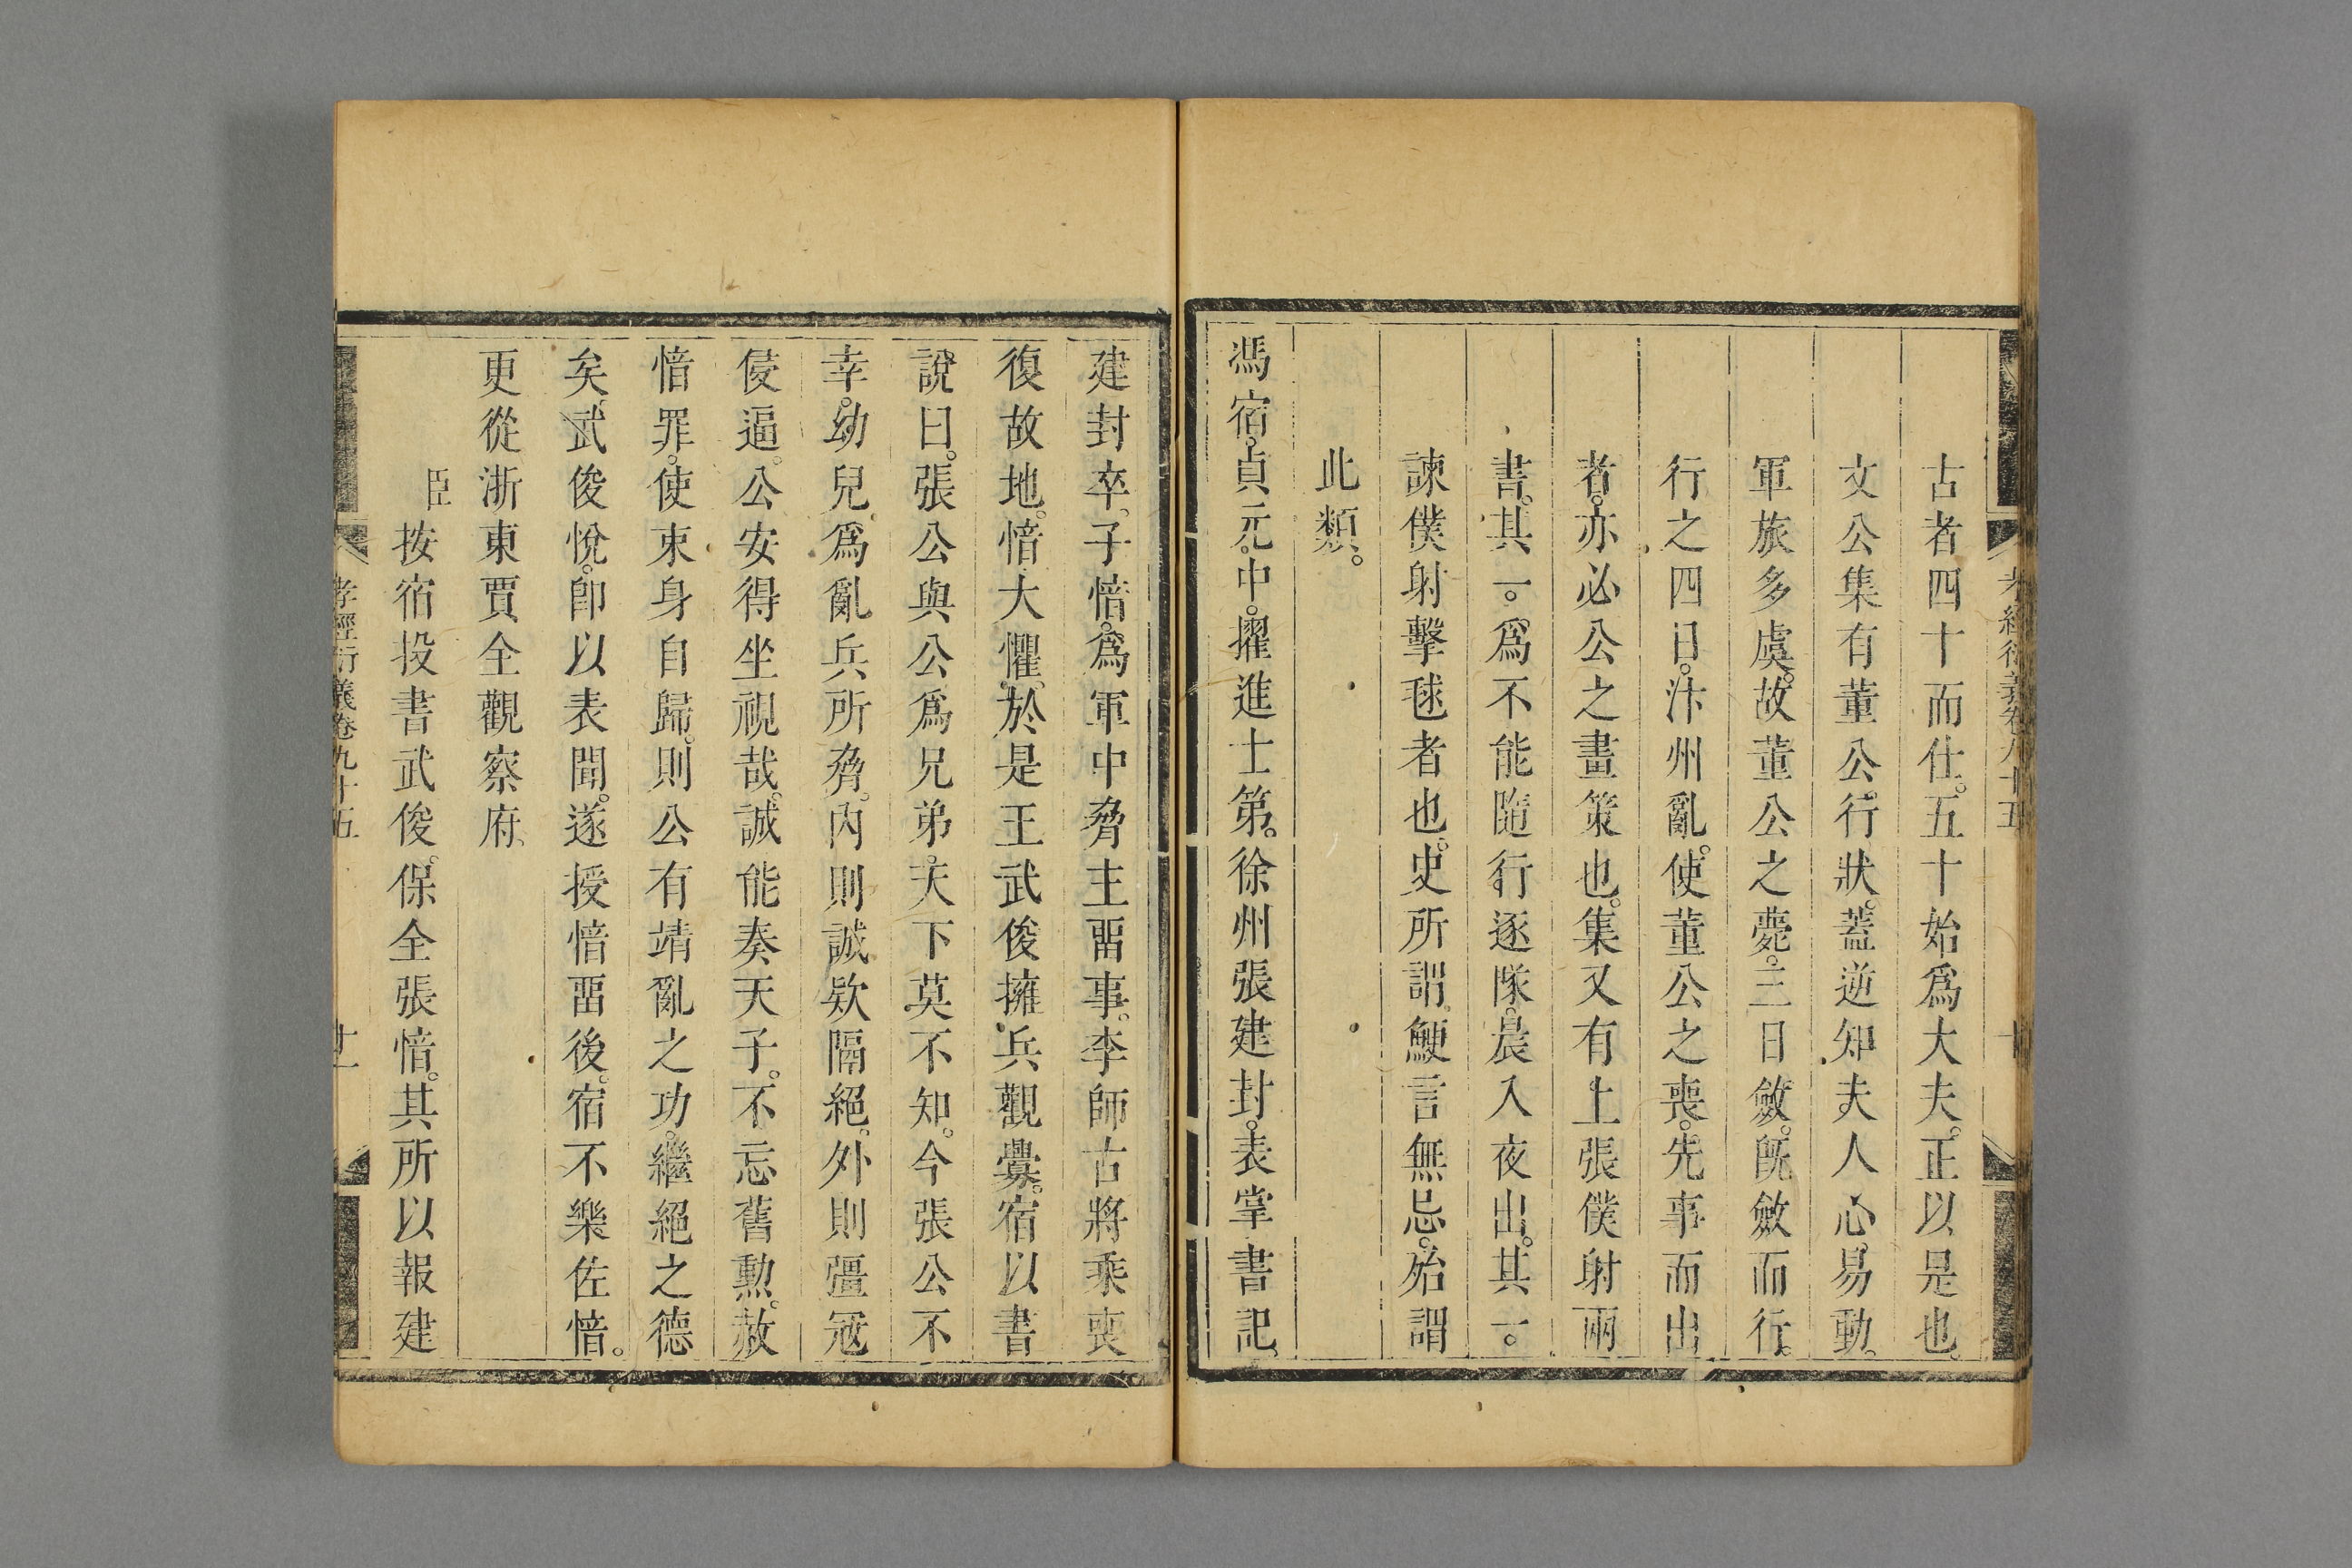 孝經衍義卷九十五
十
古者四十而仕。五十始爲大夫。正以是也。
文公集有董公。行狀。蓋逆知夫人心。易動。
軍旅多虞。故董公之薨。三日斂。旣斂而行。
行之四日。汴州亂。使董公之喪。先事而出
者。亦必公之畫策也。集又有上張僕射兩
書。其一。爲不能隨行逐隊。晨入夜出。其一。
諫僕射擊毬者也。史所謂。鯁言無忌。殆謂
此類。
馮宿。貞元。中。擢進士第。徐州張建封。表掌書記。
建封卒。子愔。爲軍中脅主畱事。李師古將乘喪
復故地。愔大懼。於是王武俊擁兵觀釁。宿以書
說曰。張公與公爲兄弟。天下莫不知。今張公不
幸。幼兒爲亂兵所脅。內則誠欵隔絕。外則彊寇
侵逼。公安得坐視哉。誠能奏天子。不忘舊勲。赦
愔罪。使束身自歸。則公有靖亂之功。繼絕之德
矣。武俊悅。卽以表聞。遂授愔畱後。宿不樂佐愔。
更從浙東賈全觀察府。
臣按宿投書武俊。保全張愔。其所以報建
孝經衍義卷九十五
十一